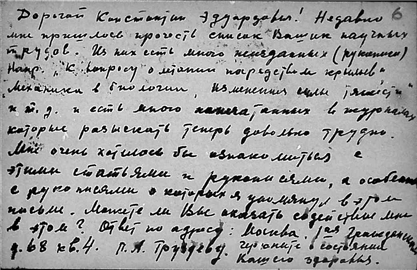 Дорогой Константин Эдуардович! Недавно 6
мне пришлось прочесть список Ваших научных
трудов. Из них есть много неизданных (рукописи)
Напр. "К вопросу о летании посредством крыльев"
Механика в биологии, изменения силы тяжести"
и т.д. и есть много напечатанных в журналах
которые разыскать теперь довольно трудно.
Мне очень хотелось бы ознакомиться с
этими статьями и рукописями, а особенно
с рукописями о которых я упомянул в этом
письме. Можете ли Вы оказать содействие мне
в этом? Ответ по адресу: Москва, 1ая
д. 68 кв. 4. П. А. состоянии
Вашего здоровья.